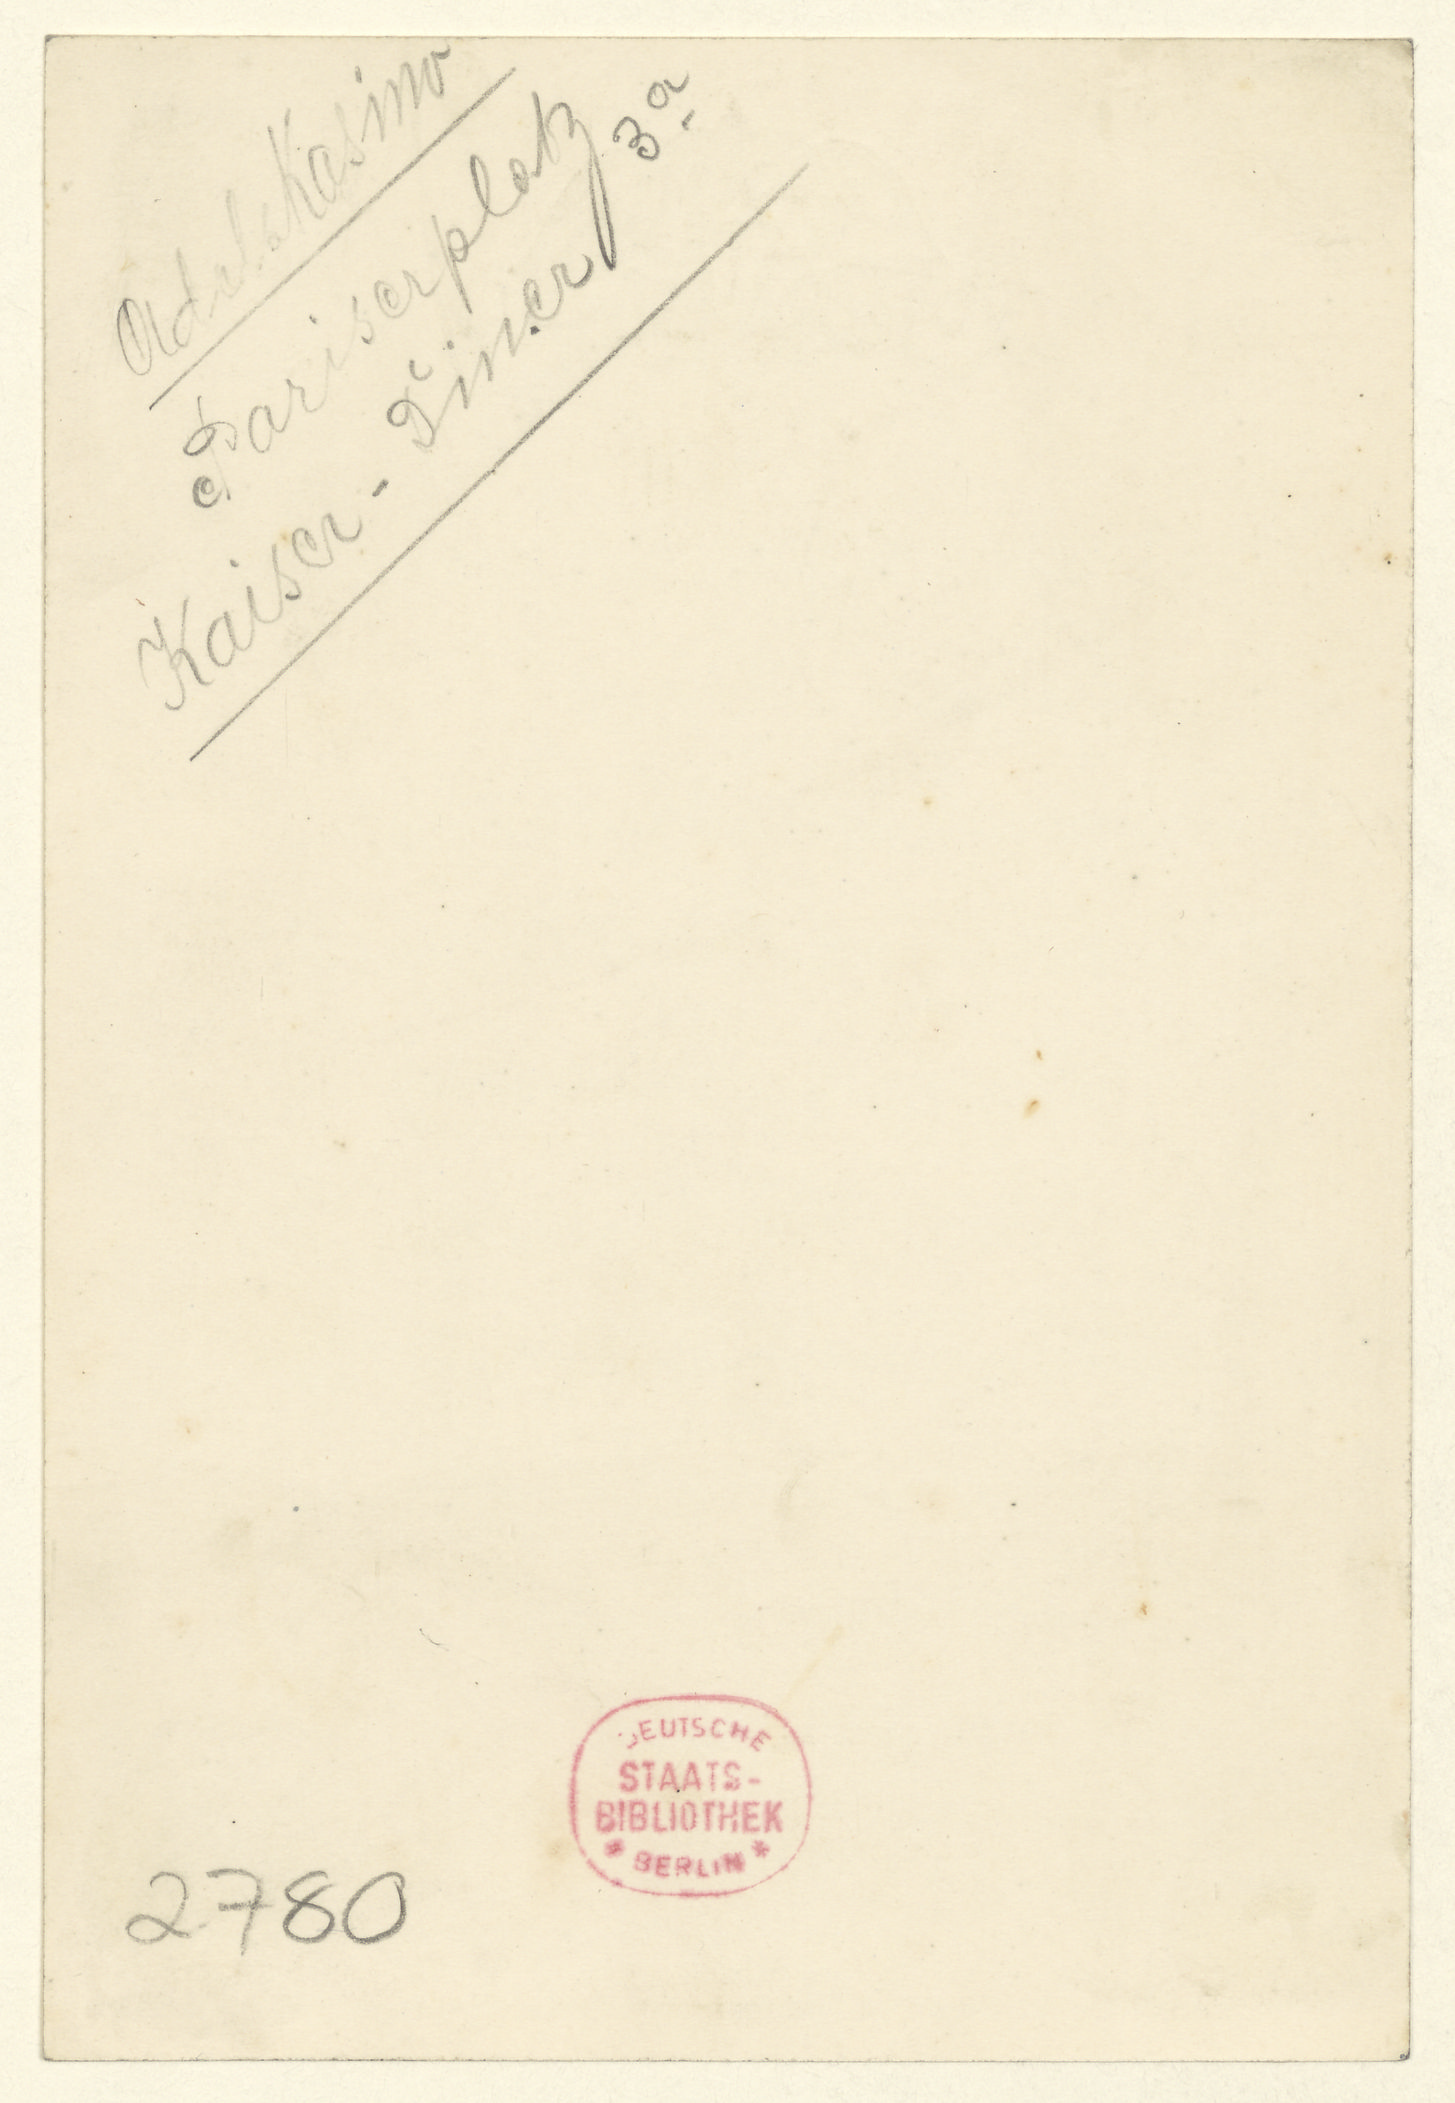 Adelskasino
Pariserplatz 3a
Kaiser-Diner
DEUTSCHE
STAATS-
BIBLIOTHEK
* BERLIN *
2780